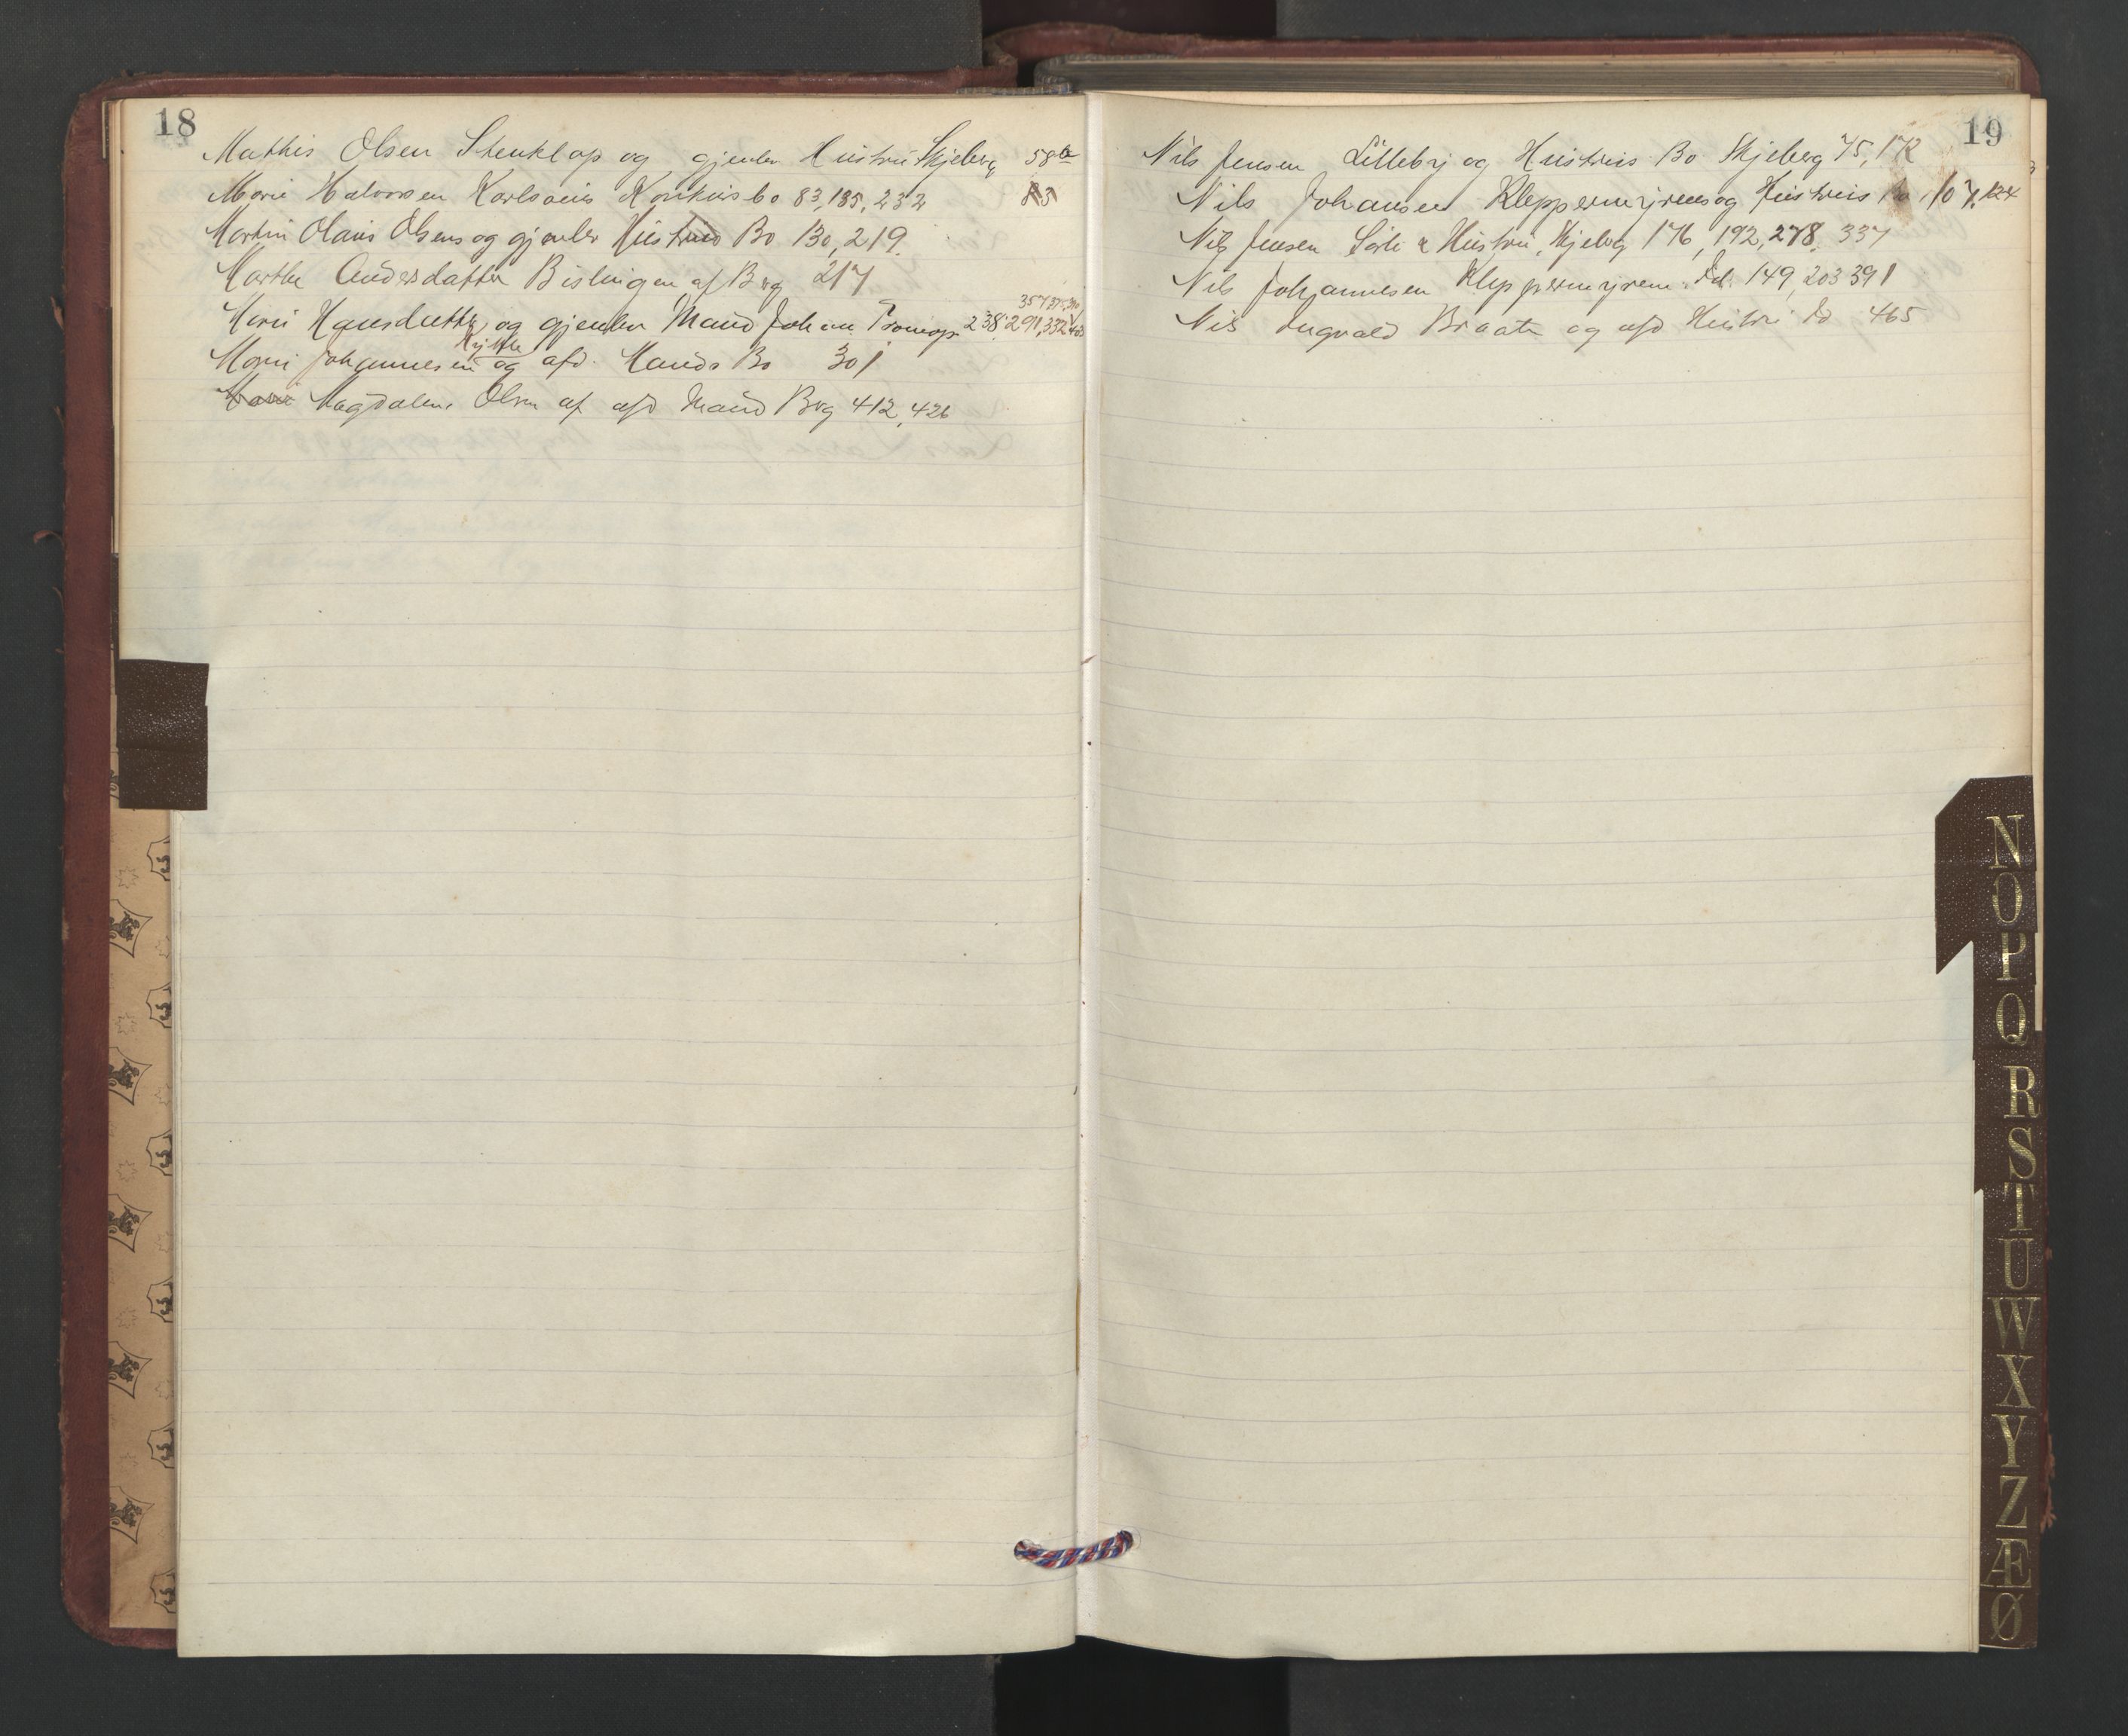 18
Mathis Olsen Stenklop og gjenlev Hustru Skjeberg 58b
Marie Halvorsen Karlsøens Konkursbo 83, 185, 232
Martin Olaus Olsens og gjenlev Hustrus Bo 130, 219.
Marthe Andersdatter Bislingen af Berg 217
357, 375, 390
Maren Hansdatter og gjenlev Mand Johan Tronsen 238, 291, 332, 403
Kjølbo
Maren Johannesen og afd. Mands Bo 301
Maren Magdalene Olsen af afd Mand Berg 412, 426
19
Nils Jensen Lilleby og Hustrus Bo Skjeberg 75, 172
Nils Johansen Kleppermyrens og Hustrus Bo 107, 124
Nils Jensen Sørli & Hustru, Skjeberg 176, 192, 278, 337
Nils Johannesen Kleppermyren. Id. 149, 203 391
Nils Ingvald Braaten og afd Hustru Id 465
N
O
P
Q
R
S
T
U
W
X
Y
Z
Æ
Ø